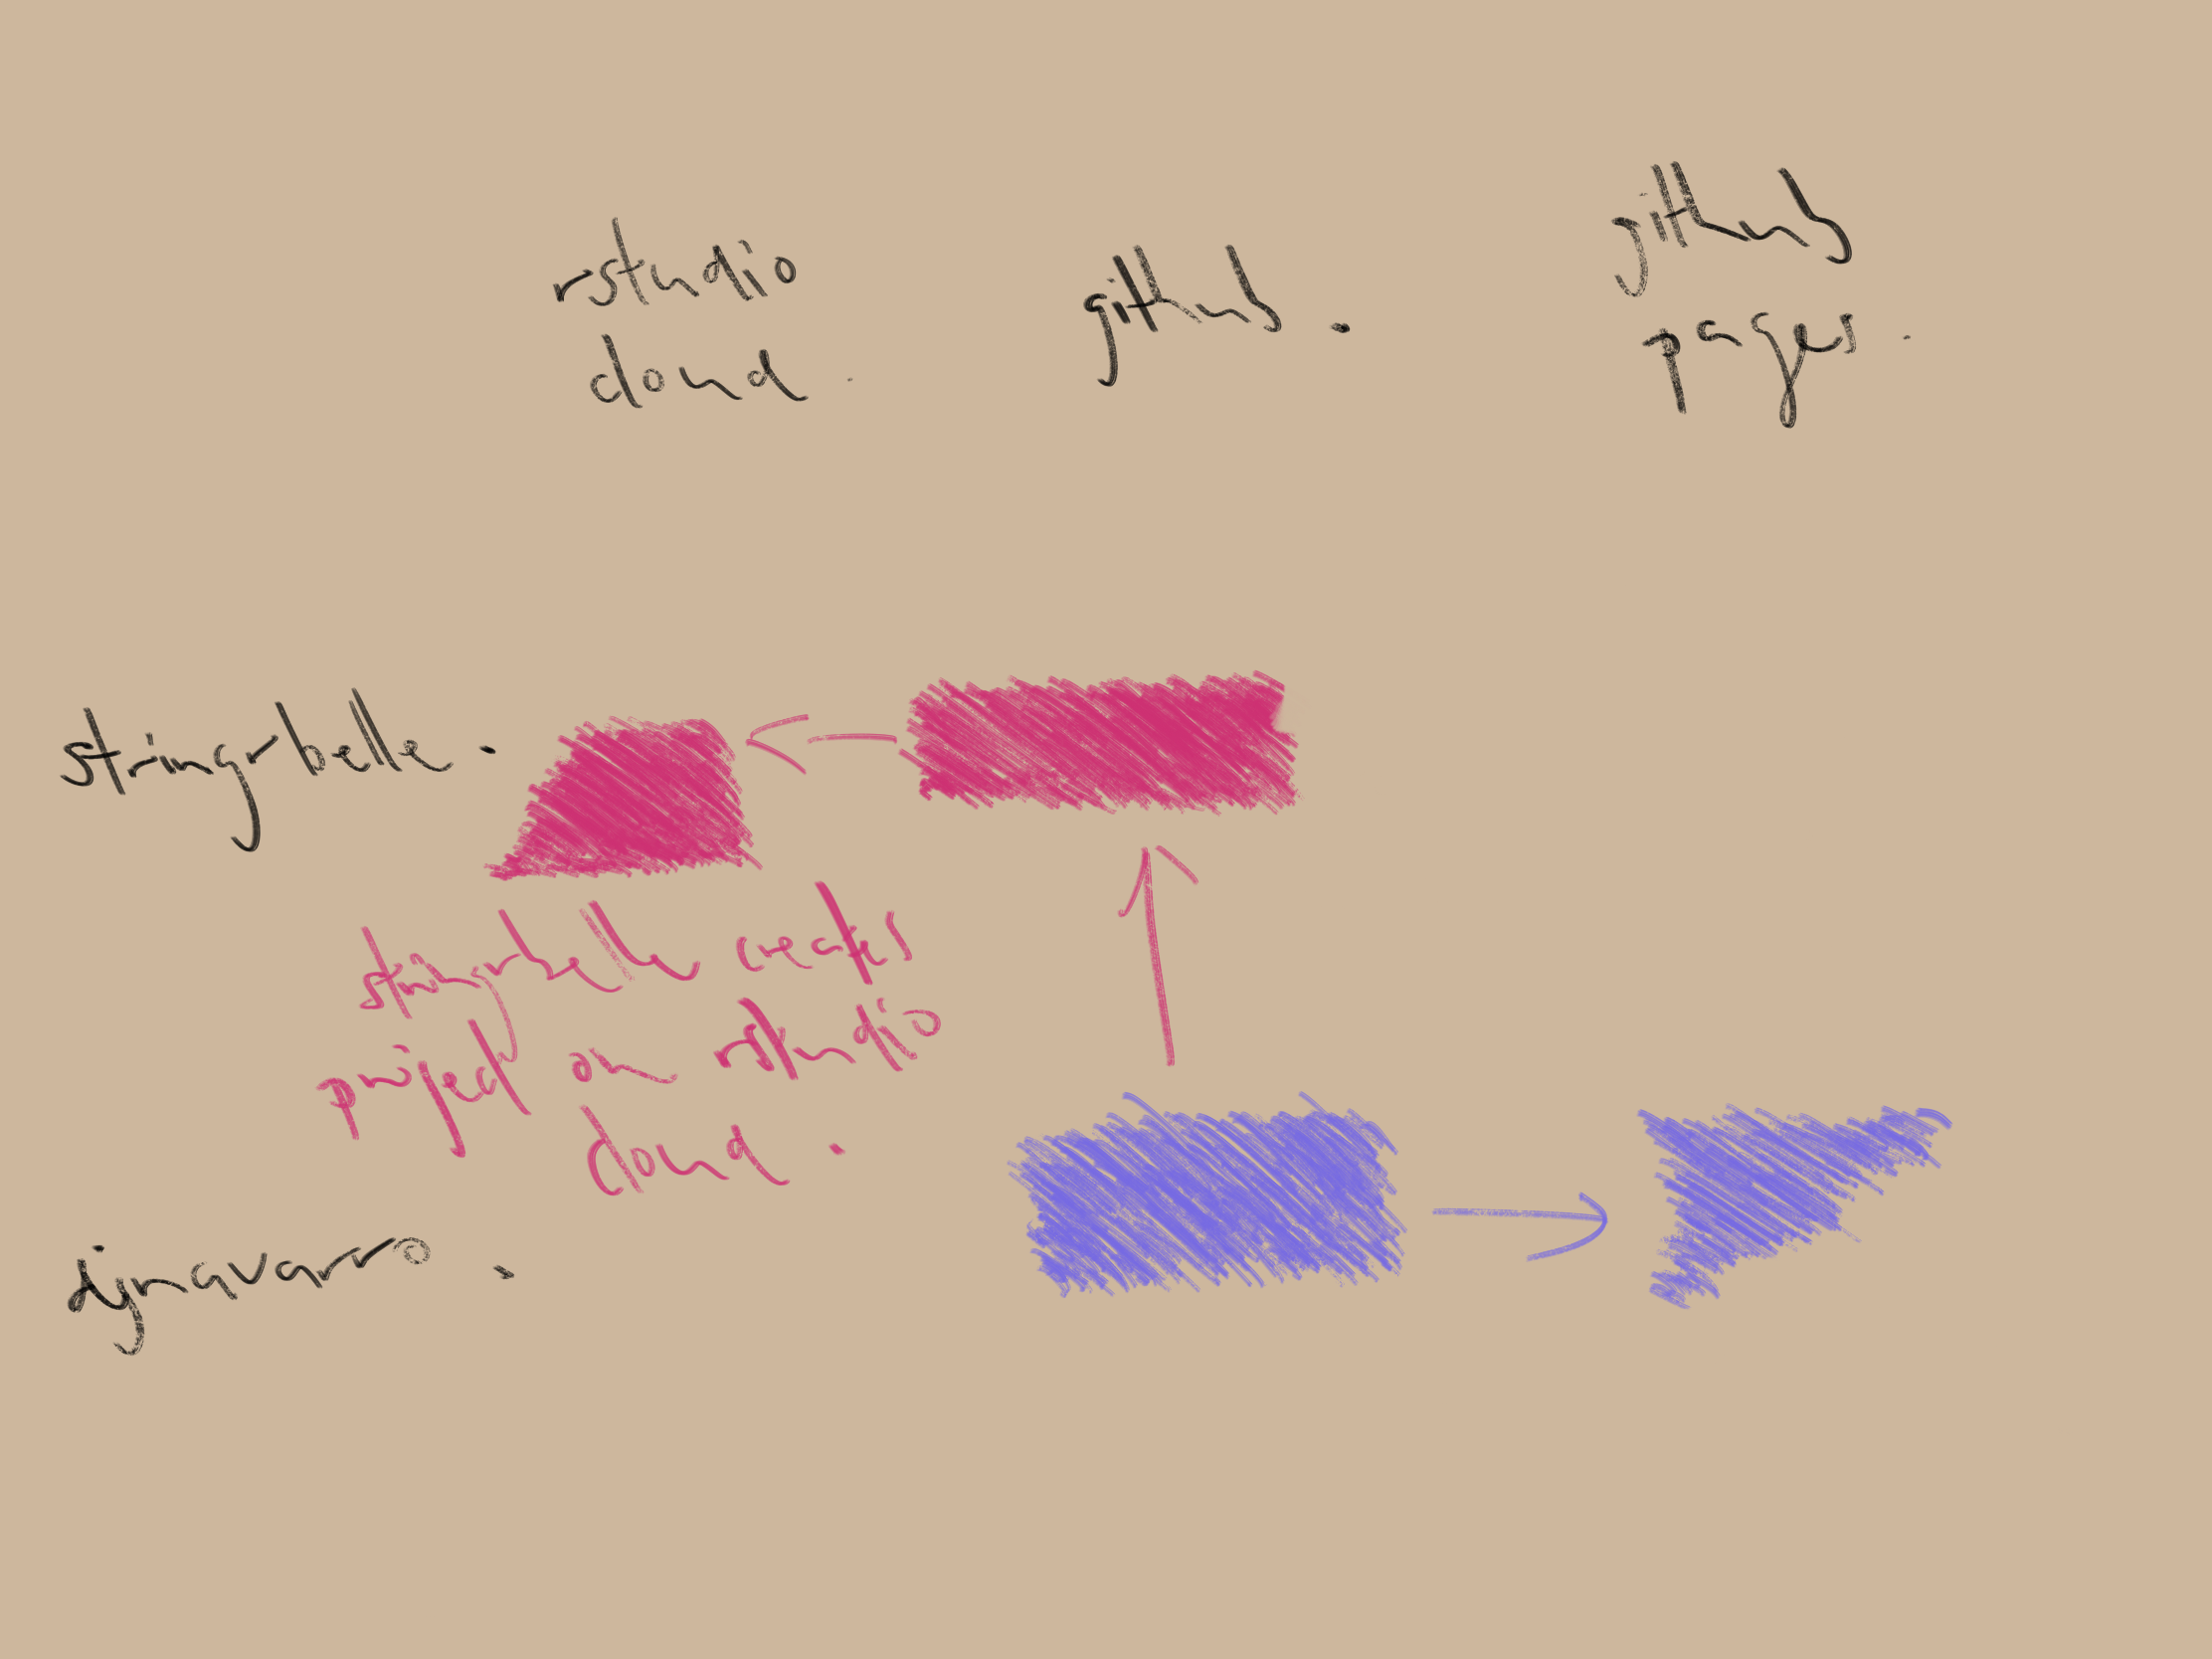 rstudio
cloud.
github.
github
pages.
stringr-belle.
stringrbelle creates
project on rstudio
cloud.
djnavarro.